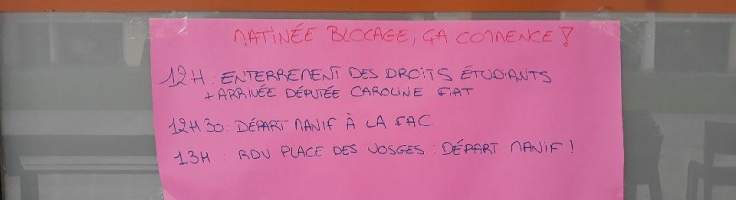 MATINÉE BLOCAGE, ÇA COMMENCE !
12H : ENTERREMENT DES DROITS ÉTUDIANTS
+ ARRIVÉE DÉPUTÉE CAROLINE FIAT
12H30 : DÉPART MANIF À LA FAC
13H : RDV PLACE DES VOSGES : DÉPART MANIF !